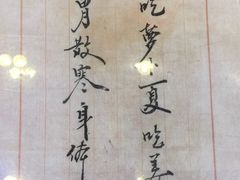 吃萝卜夏吃姜
胃散寒身体